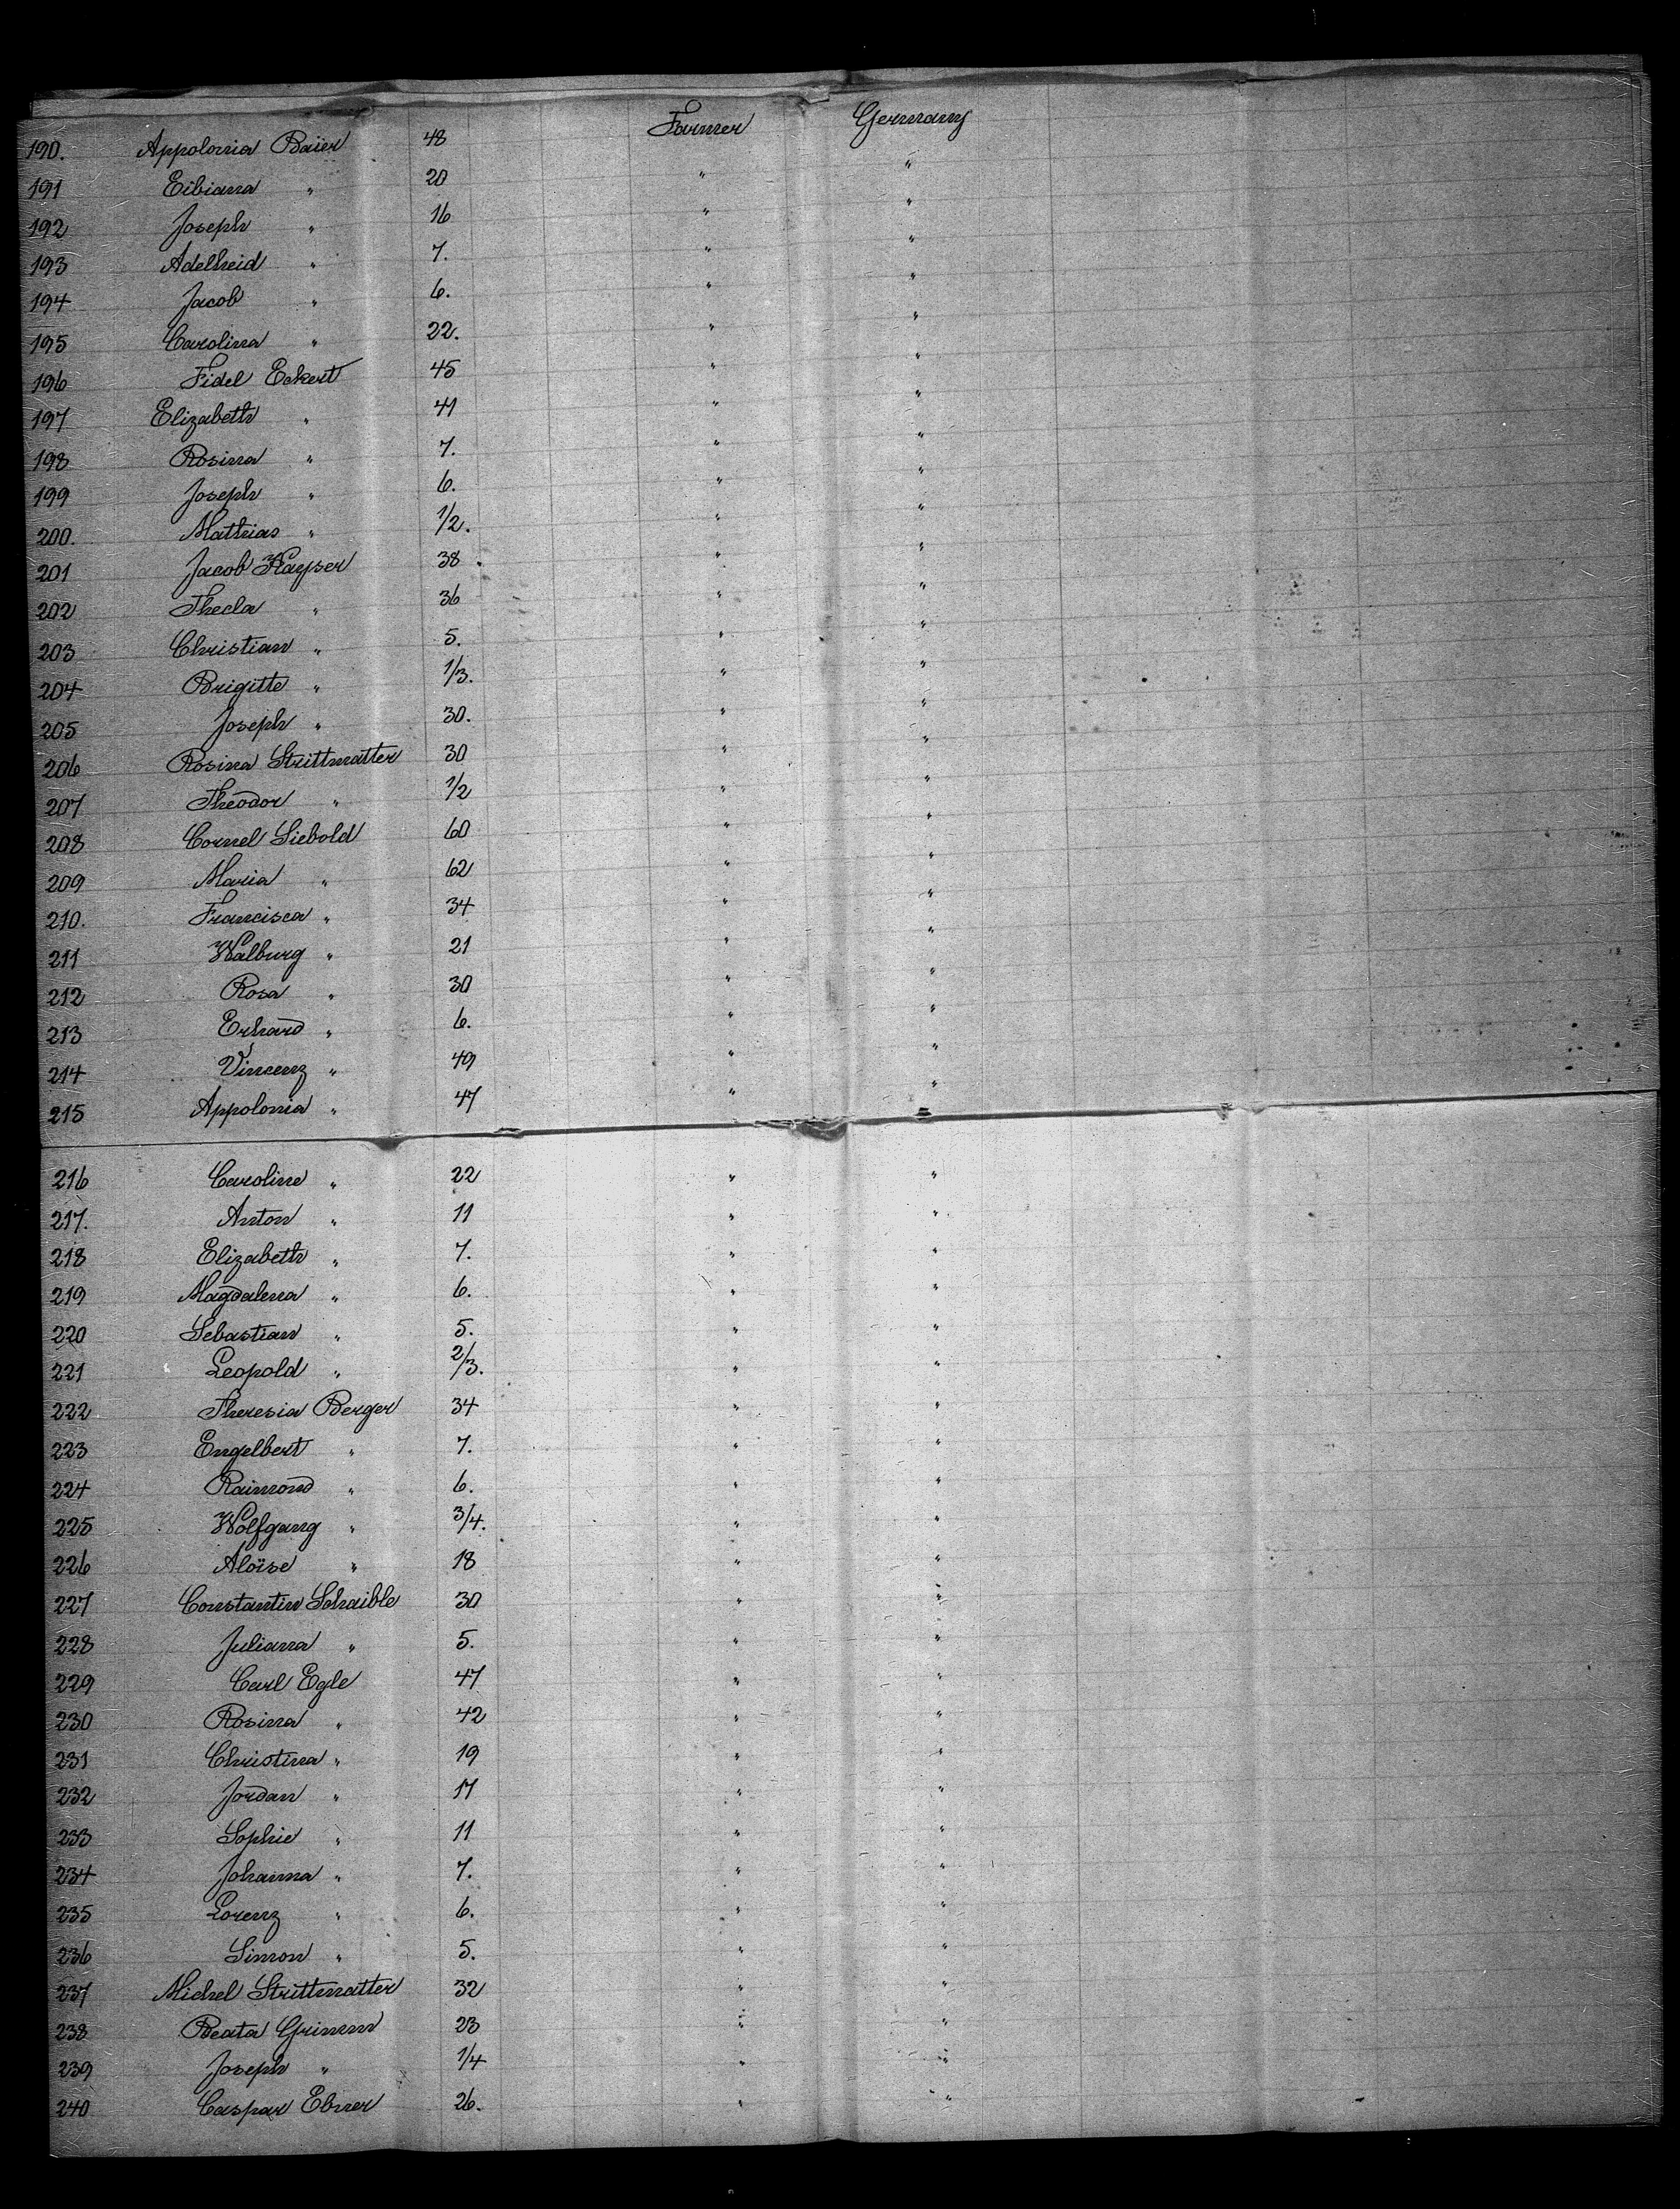 190. Appolonia Baier 48 Farmer Germany
191 Bibiana " 20 " "
192 Joseph " 16 " "
193 Adelheid " 7. " "
194 Jacob " 6. " "
195 Carolina " 22. " "
196 Fidel Eckert 45 " "
197 Elizabeth " 41 " "
198 Rosina " 7. " "
199 Joseph " 6. " "
200. Mathias " 1/2. " "
201 Jacob Kayser 38. " "
202 Thecla " 36 " "
203 Christian " 5. " "
204 Brigitte " 1/3. " "
205 Joseph " 30. " "
206 Rosina Strittmatter 30 " "
207 Theodor " 1/2 " "
208 Cornel Siebold 60 " "
209 Maria " 62 " "
210. Francisca " 34 " "
211 Walburg " 21 " "
212 Rosa " 30 " "
213 Erhard " 6. " "
214 Vincenz " 49 " "
215 Appolonia " 47 " "
216 Caroline " 22 " "
217. Anton " 11 " "
218 Elizabeth " 7. " "
219 Magdalena " 6. " "
220 Sebastian " 5. " "
221 Leopold " 2/3. " "
222 Theresia Berger 34 " "
223 Engelbert " 7. " "
224 Raimond " 6. " "
225 Wolfgang " 3/4. " "
226 Aloïse " 18 " "
227 Constantin Schaible 30 " "
228 Juliana " 5. " "
229 Carl Egle 47 " "
230 Rosina " 42 " "
231 Christina " 19 " "
232 Jordan " 17 " "
233 Sophie " 11 " "
234 Johanna " 7. " "
235 Lorenz " 6. " "
236 Simon " 5. " "
237 Michel Strittmatter 32 " "
238 Beata Grimm 23 " "
239 Joseph " 1/4 " "
240 Caspar Ebner 26. " "